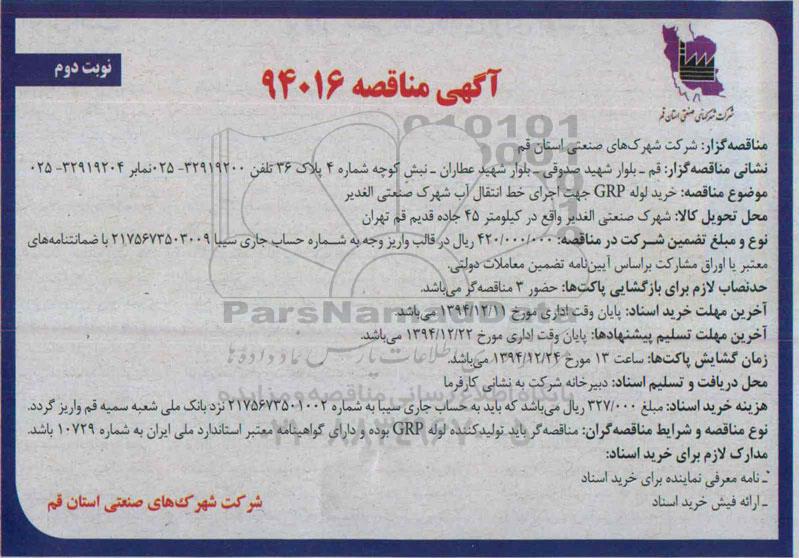 شرکت شهرکهای صنعتی استان قم
نوبت دوم
آگهی مناقصه ۹۴۰۱۶
مناقصه‌گزار: شرکت شهرک‌های صنعتی استان قم
نشانی مناقصه‌گزار: قم ـ بلوار شهید صدوقی ـ بلوار شهید عطاران ـ نبش کوچه شماره ۴ پلاک ۳۶ تلفن ۳۲۹۱۹۲۰۰- ۰۲۵نمابر ۳۲۹۱۹۲۰۴- ۰۲۵
موضوع مناقصه: خرید لوله GRP جهت اجرای خط انتقال آب شهرک صنعتی الغدیر
محل تحویل کالا: شهرک صنعتی الغدیر واقع در کیلومتر ۴۵ جاده قدیم قم تهران
نوع و مبلغ تضمین شرکت در مناقصه: ۴۲۰/۰۰۰/۰۰۰ ریال در قالب واریز وجه به شماره حساب جاری سیبا ۲۱۷۵۶۷۳۵۰۳۰۰۹ با ضمانتنامه‌های
معتبر یا اوراق مشارکت براساس آیین‌نامه تضمین معاملات دولتی.
حدنصاب لازم برای بازگشایی پاکت‌ها: حضور ۳ مناقصه‌گر می‌باشد.
آخرین مهلت خرید اسناد: پایان وقت اداری مورخ ۱۳۹۴/۱۲/۱۱ می‌باشد.
آخرین مهلت تسلیم پیشنهادها: پایان وقت اداری مورخ ۱۳۹۴/۱۲/۲۲ می‌باشد.
زمان گشایش پاکت‌ها: ساعت ۱۳ مورخ ۱۳۹۴/۱۲/۲۴ می‌باشد.
محل دریافت و تسلیم اسناد: دبیرخانه شرکت به نشانی کارفرما
هزینه خرید اسناد: مبلغ ۳۲۷/۰۰۰ ریال می‌باشد که باید به حساب جاری سیبا به شماره ۲۱۷۵۶۷۳۵۰۱۰۰۲ نزد بانک ملی شعبه سمیه قم واریز گردد.
نوع مناقصه و شرایط مناقصه‌گران: مناقصه‌گر باید تولیدکننده لوله GRP بوده و دارای گواهینامه معتبر استاندارد ملی ایران به شماره ۱۰۷۲۹ باشد.
مدارک لازم برای خرید اسناد:
ـ نامه معرفی نماینده برای خرید اسناد
ـ ارائه فیش خرید اسناد
شرکت شهرک‌های صنعتی استان قم
ParsNamadData